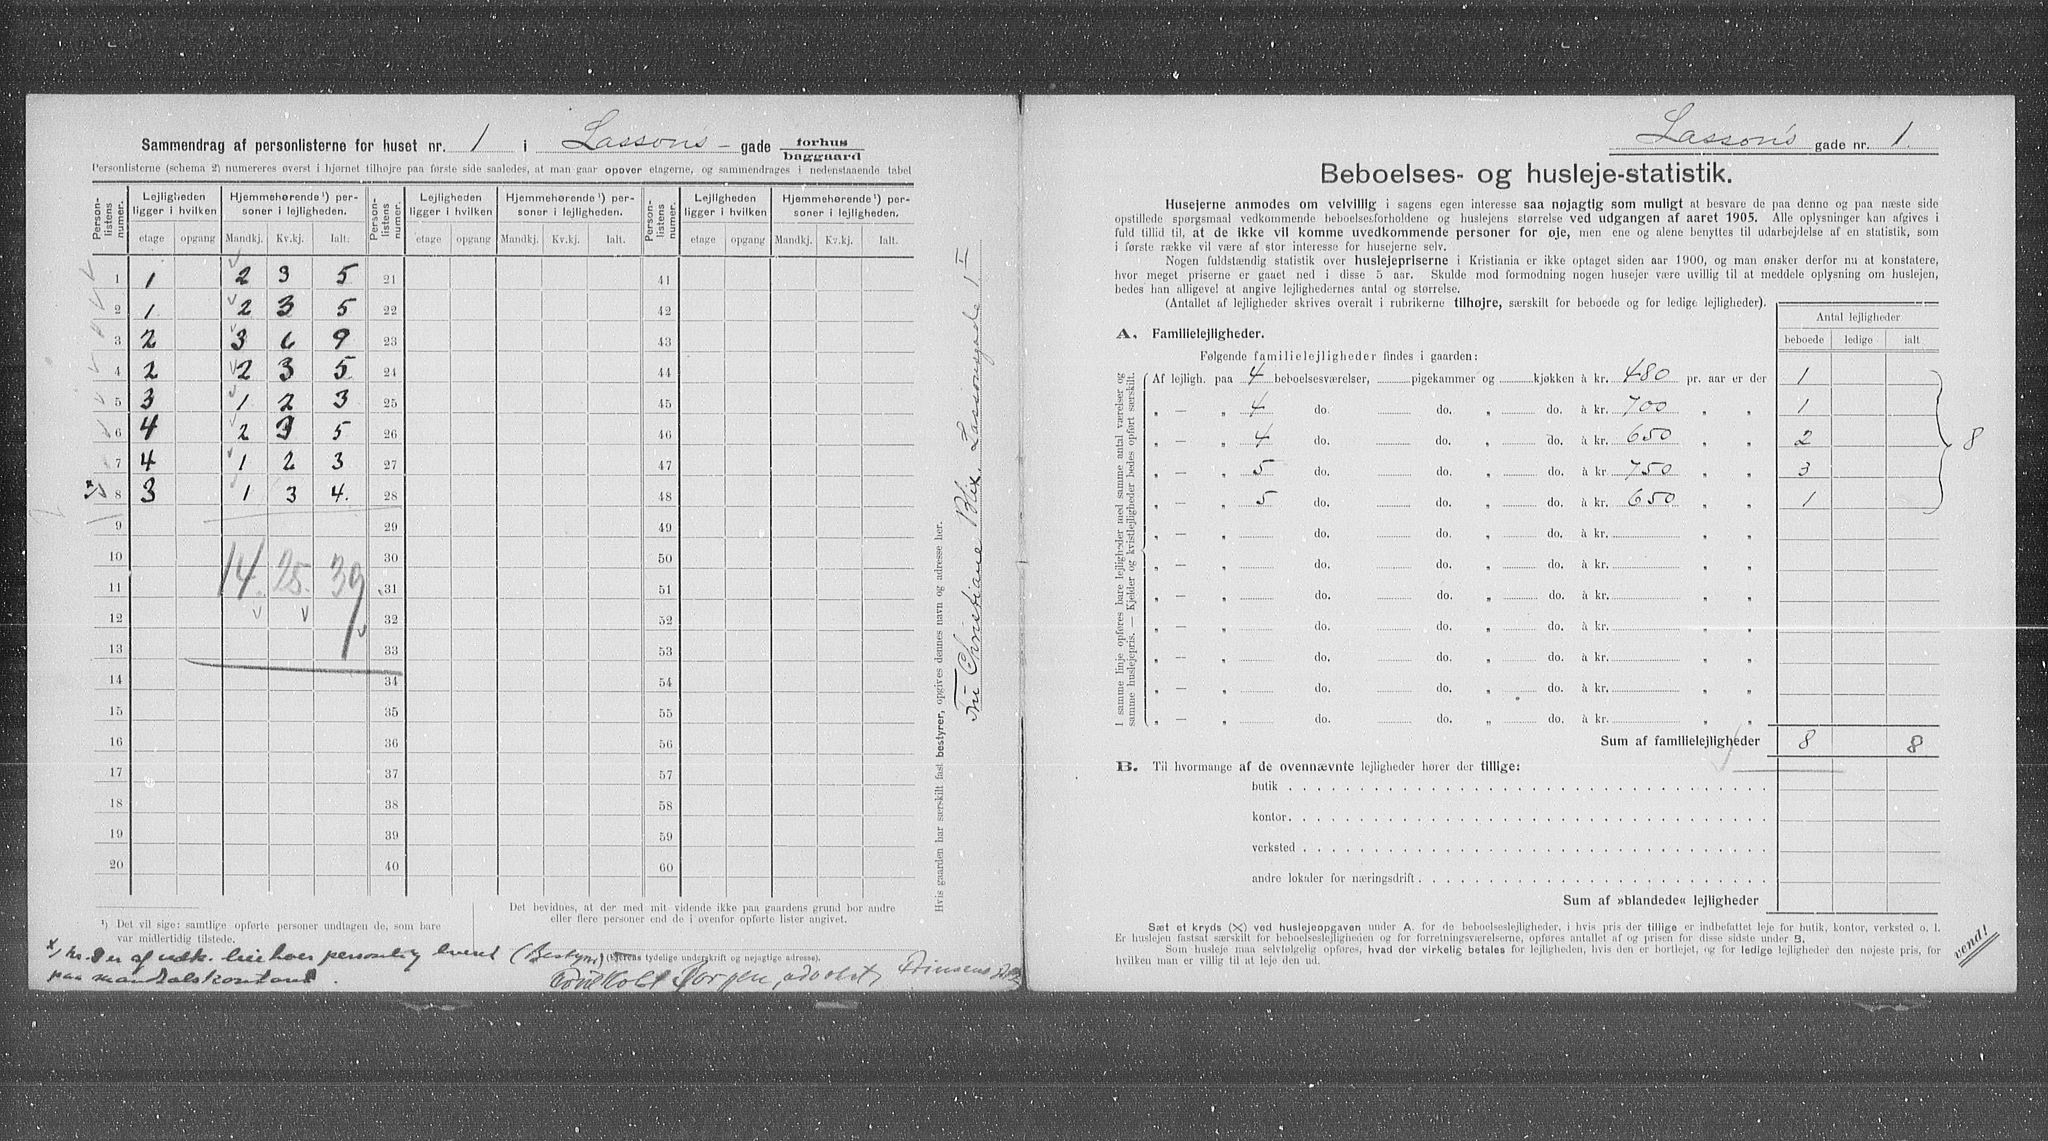 Sammendrag af personlisterne for huset nr. 1 i Lassons- gade forhus
baggaard
Personlisterne (schema 2) numereres øverst i hjørnet tilhøjre paa første side saaledes, at man gaar opover etagerne, og sammendrages i nedenstaaende tabel
Person-listens numer. Lejligheden ligger i hvilken Hjemmehørende ¹) personer i lejligheden. Person-listens numer. Lejligheden ligger i hvilken Hjemmehørende ¹) personer i lejligheden. Person-listens numer. Lejligheden ligger i hvilken Hjemmehørende ¹) personer i lejligheden.
etage opgang Mandkj. Kv.kj. Ialt. etage opgang Mandkj. Kv.kj. Ialt. etage opgang Mandkj. Kv.kj. Ialt.
1 1 2 3 5 21 41
2 1 2 3 5 22 42
3 2 3 6 9 23 43
4 2 2 3 5 24 44
5 3 1 2 3 25 45
6 4 2 3 5 26 46
7 4 1 2 3 27 47
8 3 1 3 4. 28 48
9 29 49
10 30 50
14. 25. 39
11 31 51
12 32 52
13 33 53
14 34 54
15 35 55
16 36 56
17 37 57
18 38 58
19 39 59
20 40 60
¹) Det vil sige: samtlige opførte personer undtagen de, som bare
var midlertidig tilstede.
Det bevidnes, at der med mit vidende ikke paa gaardens grund bor andre
eller flere personer end de i ovenfor opførte lister angivet.
(Ejerens tydelige underskrift og nøjagtige adresse).
x, nr. 8 er af udk. personlig (Bestyrer)
paa
advokat, Prinsens
Hvis gaarden har særskilt fast bestyrer, opgives dennes navn og adresse her.
Fru Christiane Blix. Lassonsgade 1 I
Lasson's gade nr. 1.
Beboelses- og husleje-statistik.
Husejerne anmodes om velvillig i sagens egen interesse saa nøjagtig som muligt at besvare de paa denne og paa næste side
opstillede spørgsmaal vedkommende beboelsesforholdene og huslejens størrelse ved udgangen af aaret 1905. Alle oplysninger kan afgives i
fuld tillid til, at de ikke vil komme uvedkommende personer for øje, men ene og alene benyttes til udarbejdelse af en statistik, som
i første række vil være af stor interesse for husejerne selv.
Nogen fuldstændig statistik over huslejepriserne i Kristiania er ikke optaget siden aar 1900, og man ønsker derfor nu at konstatere,
hvor meget priserne er gaaet ned i disse 5 aar. Skulde mod formodning nogen husejer være uvillig til at meddele oplysning om huslejen,
bedes han alligevel at angive lejlighedernes antal og størrelse.
(Antallet af lejligheder skrives overalt i rubrikerne tilhøjre, særskilt for beboede og for ledige lejligheder).
Antal lejligheder
beboede ledige ialt
A. Familielejligheder.
Følgende familielejligheder findes i gaarden:
I samme linje opføres bare lejligheder med samme antal værelser og
samme huslejepris. — Kjelder og kvistlejligheder bedes opført særskilt.
Af lejligh. paa 4 beboelsesværelser, pigekammer og kjøkken à kr. 480 pr. aar er der 1
„ — „ 4 do. do. „ do. à kr. 700 „ „ 1
„ — „ 4 do. do. „ do. à kr. 650 „ „ 2 8
„ — „ 5 do. do. „ do. à kr. 750 „ „ 3
„ — „ 5 do. do. „ do. à kr. 650 „ „ 1
„ — „ do. do. „ do. à kr. „ „
„ — „ do. do. „ do. à kr. „ „
„ — „ do. do. „ do. à kr. „ „
„ — „ do. do. „ do. à kr. „ „
„ — „ do. do. „ do. à kr. „ „
„ — „ do. do. „ do. à kr. „ „
„ — „ do. do. „ do. à kr. „ „
Sum af familielejligheder 8 8
B. Til hvormange af de ovennævnte lejligheder hører der tillige:
butik
kontor
verksted
andre lokaler for næringsdrift
Sum af »blandede« lejligheder
Sæt et kryds (X) ved huslejeopgaven under A. for de beboelseslejligheder, i hvis pris der tillige er indbefattet leje for butik, kontor, verksted o. l.
Er huslejen fastsat særskilt for beboelseslejligheden og for forretningsværelserne, opføres antallet af og prisen for disse sidste under B.
Som husleje paa selvtølgelig opføres, hvad der virkelig betales for lejligheden, hvis den er bortlejet, og for ledige lejligheder den nøjeste pris, for
hvilken man er villig til at leje den ud.
vend!